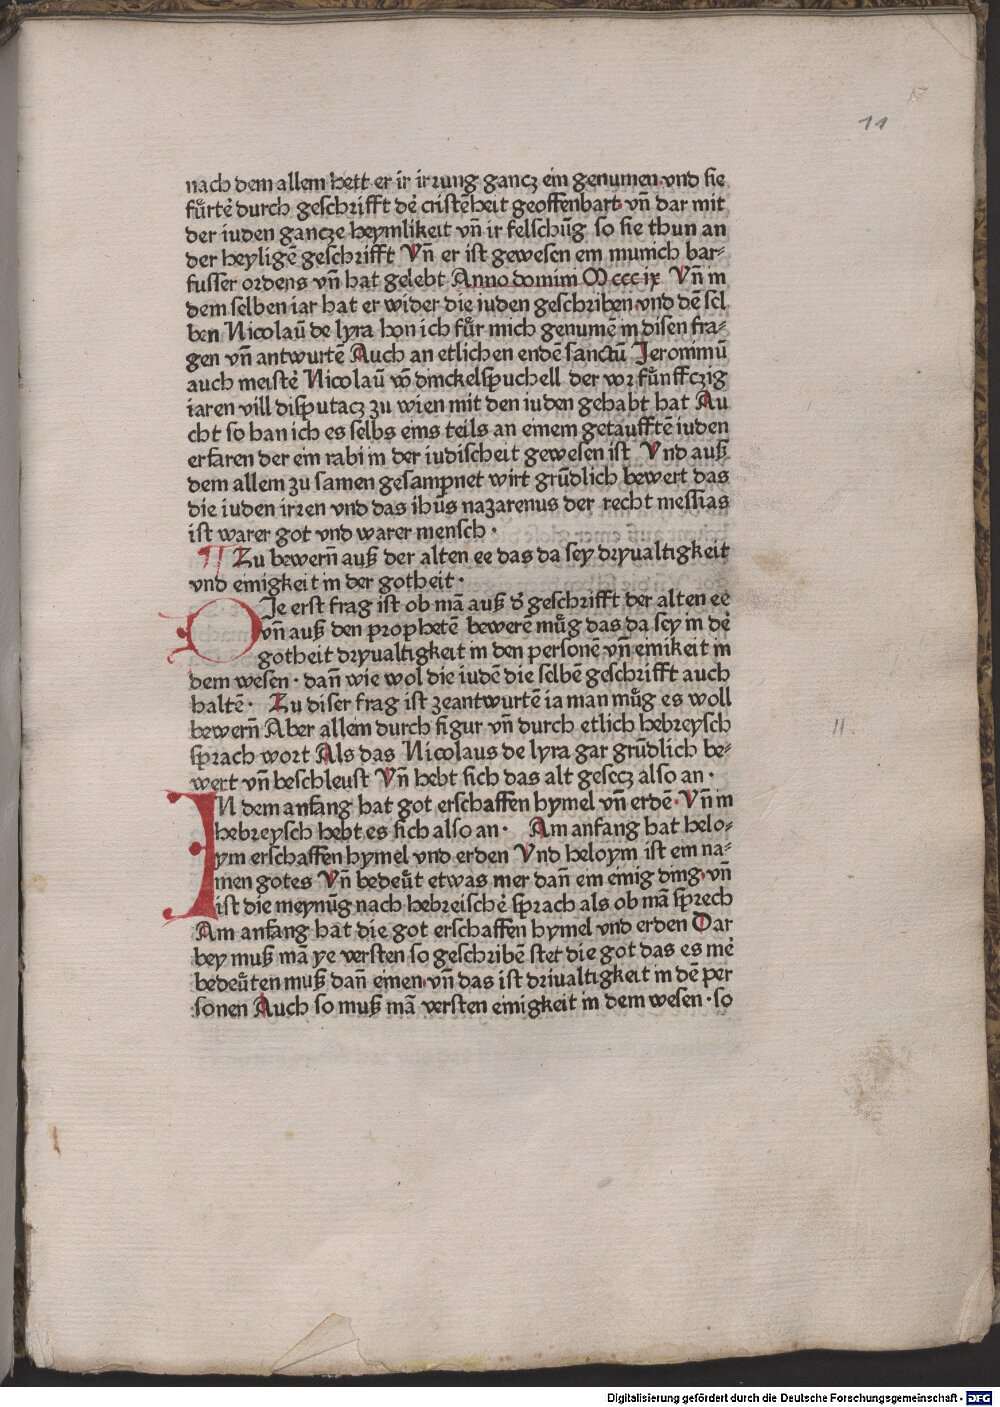 11
nach dem allem hett er ir irrung gancz ein genumen·vnd sie
fůrtē durch geschrifft dē cristēheit geoffenbart·vñ dar mit
der iuden gancze heymlikeit vñ ir felschūg so sie thun an
der heyligē geschrifft Vñ er ist gewesen ein munich bar⸗
fusser ordens vñ hat gelebt Anno domini Mcccix Vñ in
dem selben iar hat er wider die iuden geschriben·vnd dē sel
ben Nicolaū de lyra hon ich fůr mich genumē in disen fra⸗
gen vñ antwurtē Auch an etlichen endē sanctū Jeronimū
auch meistē Nicolaū vō dinckelspuchell der vor fůnffczig
iaren vill disputacz zu wien mit den iuden gehabt hat Au
cht so han ich es selbs eins teils an einem getaufftē iuden
erfaren der ein rabi in der iudischeit gewesen ist Vnd auß
dem allem zu samen gesampnet wirt grūdlich bewert das
die iuden irren vnd das ihūs nazarenus der recht messias
ist warer got vnd warer mensch·
¶ Zu bewern̄ auß der alten ee das da sey dryualtigkeit
vnd einigkeit in der gotheit·
Die erst frag ist ob mā auß d̄ geschrifft der alten ee
vñ auß den prophetē bewerē můg das da sey in dē
gotheit dryualtigkeit in den personē vñ einikeit in
dem wesen·dañ wie wol die iudē die selbē geschrifft auch
haltē· Zu diser frag ist zeantwurtē ia man můg es woll
bewern̄ Aber allein durch figur vñ durch etlich hebreysch
sprach wort Als das Nicolaus de lyra gar grūdlich be⸗
wert vñ beschleust Vñ hebt sich das alt gesecz also an·
IN dem anfang hat got erschaffen hymel vñ erdē·Vñ in
hebreysch hebt es sich also an· Am anfang hat helo⸗
ym erschaffen hymel vnd erden Vnd heloym ist ein na⸗
men gotes Vñ bedeůt etwas mer dañ ein einig ding·vñ
ist die meynūg nach hebreischē sprach als ob mā sprech
Am anfang hat die got erschaffen hymel vnd erden Dar
bey muß mā ye versten so geschribē stet die got das es mē
bedeůten muß dañ einen·vñ das ist driualtigkeit in dē per
sonen Auch so muß mā versten einigkeit in dem wesen·so
11.
Digitalisierung gefördert durch die Deutsche Forschungsgemeinschaft - DFG